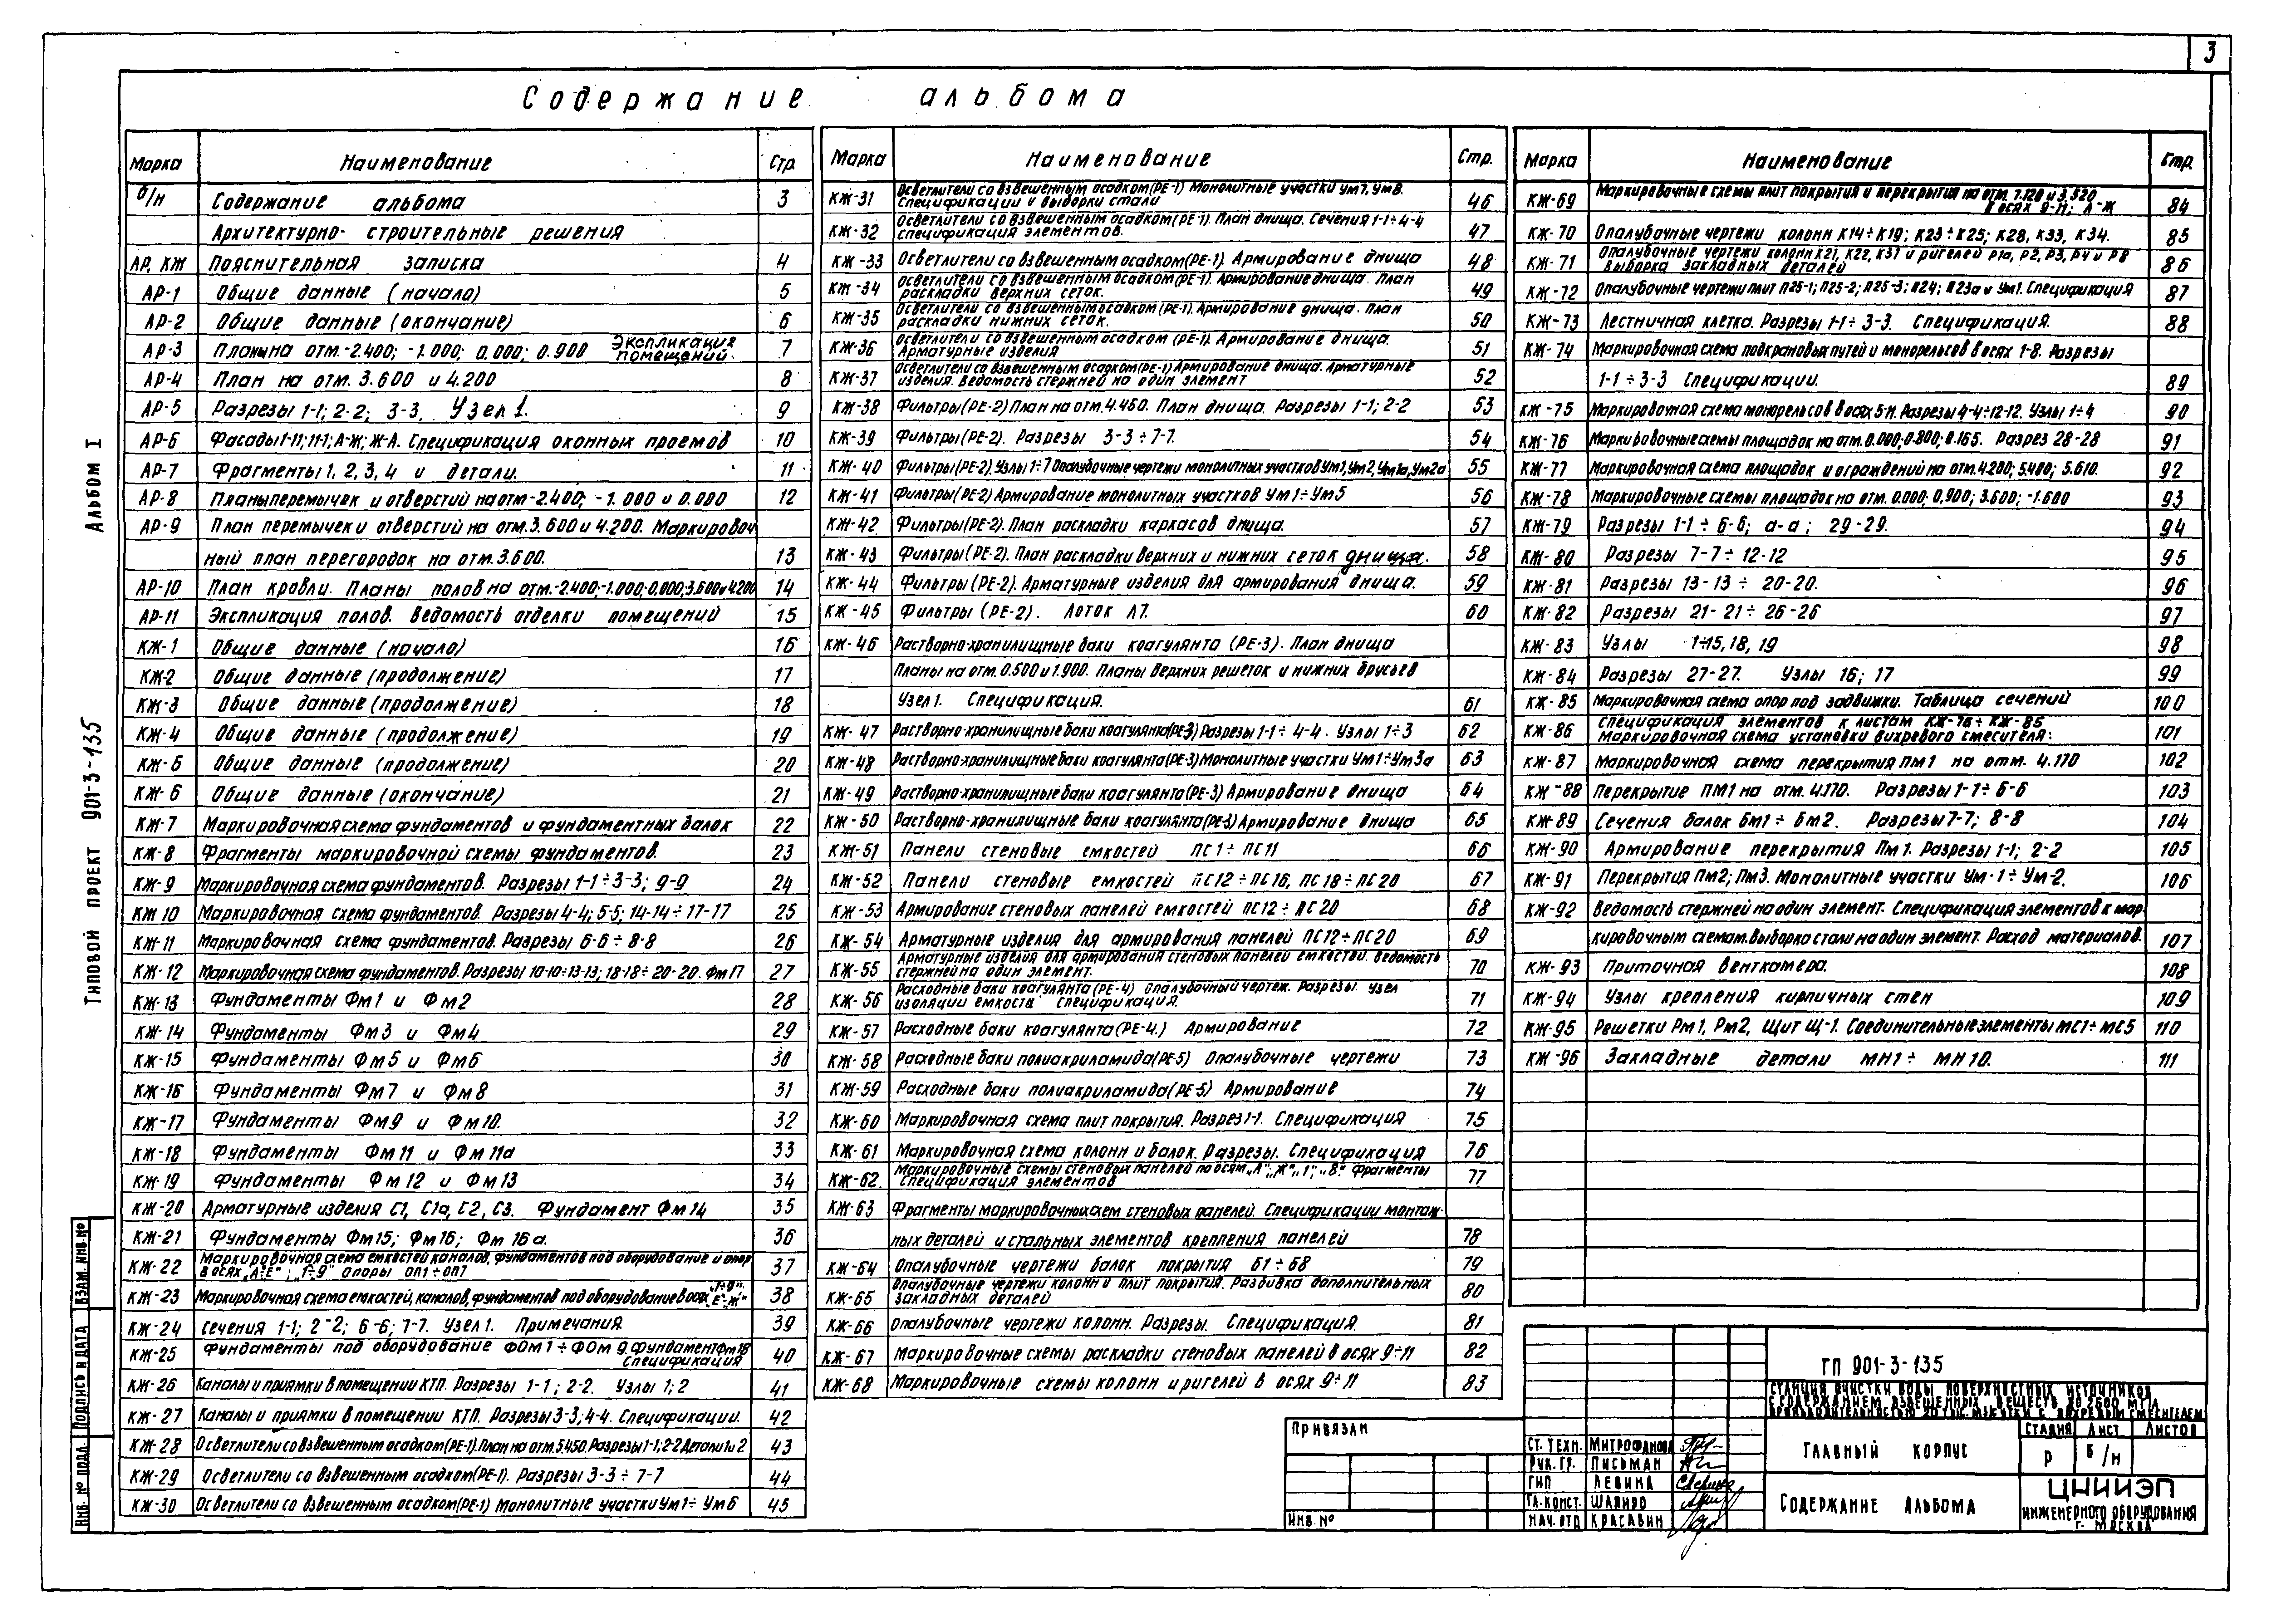 3
Содержание альбома
Марка Наименование Стр.
б/н Содержание альбома 3
Архитектурно-строительные решения
АР, КЖ Пояснительная записка 4
АР-1 Общие данные (начало) 5
АР-2 Общие данные (окончание) 6
АР-3 Планы на отм. -2.400; -1.000; 0.000; 0.900 Экспликация помещений. 7
АР-4 План на отм. 3.600 и 4.200 8
АР-5 Разрезы 1-1; 2-2; 3-3. Узел 1. 9
АР-6 Фасады 1-11; 11-1; А-Ж; Ж-А. Спецификация оконных проемов 10
АР-7 Фрагменты 1, 2, 3, 4 и детали. 11
АР-8 Планы перемычек и отверстий на отм -2.400; -1.000 и 0.000 12
АР-9 План перемычек и отверстий на отм. 3.600 и 4.200. Маркировоч
ный план перегородок на отм. 3.600. 13
АР-10 План кровли. Планы полов на отм. -2.400; -1.000; 0.000; 3.600 и 4.200 14
АР-11 Экспликация полов. Ведомость отделки помещений 15
КЖ-1 Общие данные (начало) 16
КЖ-2 Общие данные (продолжение) 17
КЖ-3 Общие данные (продолжение) 18
КЖ-4 Общие данные (продолжение) 19
КЖ-5 Общие данные (продолжение) 20
КЖ-6 Общие данные (окончание) 21
КЖ-7 Маркировочная схема фундаментов и фундаментных балок 22
КЖ-8 Фрагменты маркировочной схемы фундаментов. 23
КЖ-9 Маркировочная схема фундаментов. Разрезы 1-1÷3-3; 9-9 24
КЖ 10 Маркировочная схема фундаментов. Разрезы 4-4; 5-5; 14-14÷17-17 25
КЖ-11 Маркировочная схема фундаментов. Разрезы 6-6÷8-8 26
КЖ-12 Маркировочная схема фундаментов. Разрезы 10-10÷13-13; 18-18÷20-20. Фм 17 27
КЖ-13 Фундаменты Фм1 и Фм2 28
КЖ-14 Фундаменты Фм3 и Фм4 29
КЖ-15 Фундаменты Фм5 и Фм6 30
КЖ-16 Фундаменты Фм7 и Фм8 31
КЖ-17 Фундаменты Фм9 и Фм10. 32
КЖ-18 Фундаменты Фм11 и Фм11а 33
КЖ-19 Фундаменты Фм12 и Фм13 34
КЖ-20 Арматурные изделия С1, С1а, С2, С3. Фундамент Фм14 35
КЖ-21 Фундаменты Фм15; Фм16; Фм 16а. 36
КЖ-22 Маркировочная схема емкостей каналов, фундаментов под оборудование и опор
в осях „А÷Е"; „1÷9" опоры ОП1÷ОП7 37
КЖ-23 Маркировочная схема емкостей, каналов, фундаментов под оборудование в осях „1÷9"; „Е÷Ж" 38
КЖ-24 Сечения 1-1; 2-2; 6-6; 7-7. Узел 1. Примечания. 39
КЖ-25 Фундаменты под оборудование ФОм1÷ФОм 9. Фундамент Фм18
Спецификация 40
КЖ-26 Каналы и приямки в помещении КТП. Разрезы 1-1; 2-2. Узлы 1; 2 41
КЖ-27 Каналы и приямки в помещении КТП. Разрезы 3-3; 4-4. Спецификации. 42
КЖ-28 Осветлители со взвешенным осадком (РЕ-1). План на отм. 5.450. Разрезы 1-1; 2-2 Детали 1 и 2 43
КЖ-29 Осветлители со взвешенным осадком (РЕ-1). Разрезы 3-3÷7-7 44
КЖ-30 Осветлители со взвешенным осадком (РЕ-1) Монолитные участки Ум1÷Ум6 45
Марка Наименование Стр.
КЖ-31 Осветлители со взвешенным осадком (РЕ-1) Монолитные участки Ум7, Ум8.
Спецификации и выборки стали 46
КЖ-32 Осветлители со взвешенным осадком (РЕ-1). План днища. Сечения 1-1÷4-4
Спецификация элементов. 47
КЖ-33 Осветлители со взвешенным осадком (РЕ-1). Армирование днища 48
КЖ-34 Осветлители со взвешенным осадком (РЕ-1). Армирование днища. План
раскладки верхних сеток. 49
КЖ-35 Осветлители со взвешенным осадком (РЕ-1). Армирование днища. План
раскладки нижних сеток. 50
КЖ-36 Осветлители со взвешенным осадком (РЕ-1). Армирование днища.
Арматурные изделия 51
КЖ-37 Осветлители со взвешенным осадком (РЕ-1) Армирование днища. Арматурные
изделия. Ведомость стержней на один элемент 52
КЖ-38 Фильтры (РЕ-2) План на отм. 4.450. План днища. Разрезы 1-1; 2-2 53
КЖ-39 Фильтры (РЕ-2). Разрезы 3-3÷7-7. 54
КЖ-40 Фильтры (РЕ-2). Узлы 1÷7 Опалубочные чертежи монолитных участков Ум1, Ум2, Ум1а, Ум2а 55
КЖ-41 Фильтры (РЕ-2) Армирование монолитных участков Ум1÷Ум5 56
КЖ-42 Фильтры (РЕ-2). План раскладки каркасов днища. 57
КЖ-43 Фильтры (РЕ-2). План раскладки верхних и нижних сеток днища. 58
КЖ-44 Фильтры (РЕ-2). Арматурные изделия для армирования днища. 59
КЖ-45 Фильтры (РЕ-2). Лоток Л7. 60
КЖ-46 Растворно-хранилищные баки коагулянта (РЕ-3). План днища
Планы на отм. 0.500 и 1.900. Планы верхних решеток и нижних брусьев
Узел 1. Спецификация. 61
КЖ-47 Растворно-хранилищные баки коагулянта (РЕ-3) Разрезы 1-1÷4-4. Узлы 1÷3 62
КЖ-48 Растворно-хранилищные баки коагулянта (РЕ-3) Монолитные участки Ум1÷Ум3а 63
КЖ-49 Растворно-хранилищные баки коагулянта (РЕ-3) Армирование днища 64
КЖ-50 Растворно-хранилищные баки коагулянта (РЕ-3) Армирование днища 65
КЖ-51 Панели стеновые емкостей ПС1÷ПС11 66
КЖ-52 Панели стеновые емкостей ПС12÷ПС16, ПС18÷ПС20 67
КЖ-53 Армирование стеновых панелей емкостей ПС12÷ПС20 68
КЖ-54 Арматурные изделия для армирования панелей ПС12÷ПС20 69
КЖ-55 Арматурные изделия для армирования стеновых панелей емкости. Ведомость
стержней на один элемент. 70
КЖ-56 Расходные баки коагулянта (РЕ-4) Опалубочный чертеж. Разрезы. Узел
изоляции емкости Спецификация. 71
КЖ-57 Расходные баки коагулянта (РЕ-4.) Армирование 72
КЖ-58 Расходные баки полиакриламида (РЕ-5) Опалубочные чертежи 73
КЖ-59 Расходные баки полиакриламида (РЕ-5) Армирование 74
КЖ-60 Маркировочная схема плит покрытия. Разрез 1-1. Спецификация 75
КЖ-61 Маркировочная схема колонн и балок. Разрезы. Спецификация 76
КЖ-62. Маркировочные схемы стеновых панелей по осям „А"; „Ж"; „1"; „8". Фрагменты
Спецификация элементов 77
КЖ-63 Фрагменты маркировочных схем стеновых панелей. Спецификации монтаж-
ных деталей и стальных элементов крепления панелей 78
КЖ-64 Опалубочные чертежи балок покрытия Б1÷Б8 79
КЖ-65 Опалубочные чертежи колонн и плит покрытия. Разбивка дополнительных
закладных деталей 80
КЖ-66 Опалубочные чертежи колонн. Разрезы. Спецификация. 81
КЖ-67 Маркировочные схемы раскладки стеновых панелей в осях 9÷11 82
КЖ-68 Маркировочные схемы колонн и ригелей в осях 9÷11 83
Марка Наименование Стр.
КЖ-69 Маркировочные схемы плит покрытия и перекрытия на отм. 7.120 и 3.520
в осях 9-11; А-Ж 84
КЖ-70 Опалубочные чертежи колонн К14÷К19; К23÷К25; К28, К33, К34. 85
КЖ-71 Опалубочные чертежи колонн К21, К22, К31 и ригелей Р1а, Р2, Р3, Р4 и Р8
Выборка закладных деталей 86
КЖ-72 Опалубочные чертежи плит П25-1; П25-2; П25-3; П24; П23а и Ум1. Спецификация 87
КЖ-73 Лестничная клетка. Разрезы 1-1÷3-3. Спецификация. 88
КЖ-74 Маркировочная схема подкрановых путей и монорельсов в осях 1-8. Разрезы
1-1÷3-3 Спецификации. 89
КЖ-75 Маркировочная схема монорельсов в осях 5-11. Разрезы 4-4÷12-12. Узлы 1÷4 90
КЖ-76 Маркировочные схемы площадок на отм. 0.000; 0.800; 0.165. Разрез 28-28 91
КЖ-77 Маркировочная схема площадок и ограждений на отм. 4.200; 5.400; 5.610. 92
КЖ-78 Маркировочные схемы площадок на отм. 0.000; 0,900; 3.600; -1.600 93
КЖ-79 Разрезы 1-1÷6-6; а-а; 29-29. 94
КЖ-80 Разрезы 7-7÷12-12 95
КЖ-81 Разрезы 13-13÷20-20. 96
КЖ-82 Разрезы 21-21÷26-26 97
КЖ-83 Узлы 1÷15, 18, 19 98
КЖ-84 Разрезы 27-27. Узлы 16; 17 99
КЖ-85 Маркировочная схема опор под задвижки. Таблица сечений 100
КЖ-86 Спецификация элементов к листам КЖ-76÷КЖ-85
Маркировочная схема установки вихревого смесителя. 101
КЖ-87 Маркировочная схема перекрытия Пм1 на отм. 4.170 102
КЖ-88 Перекрытие ПМ1 на отм. 4.170. Разрезы 1-1÷6-6 103
КЖ-89 Сечения балок Бм1÷Бм2. Разрезы 7-7; 8-8 104
КЖ-90 Армирование перекрытия Пм1. Разрезы 1-1; 2-2 105
КЖ-91 Перекрытия Пм2; Пм3. Монолитные участки Ум-1÷Ум-2. 106
КЖ-92 Ведомость стержней на один элемент. Спецификация элементов к мар-
кировочным схемам. Выборка стали на один элемент. Расход материалов. 107
КЖ-93 Приточная венткамера. 108
КЖ-94 Узлы крепления кирпичных стен 109
КЖ-95 Решетки Рм1, Рм2, Щит Щ-1. Соединительные элементы МС1÷МС5 110
КЖ-96 Закладные детали МН1÷МН10. 111
Типовой проект 901-3-135 Альбом I
Взам. инв. №
Подпись и дата
Инв. № подл.
Привязан
Инв. №
Ст. техн. Митрофанова
Рук. гр. Письман
ГИП Левина
Гл. конст. Шапиро
Нач. отд Красавин
ТП 901-3-135
Станция очистки воды поверхностных источников
с содержанием взвешенных веществ до 2500 мг/л
производительностью 20 тыс. м3/сутки с вихревым смесителем
Главный корпус
Стадия Лист Листов
Р б/н
Содержание альбома
ЦНИИЭП
инженерного оборудования
г. Москва